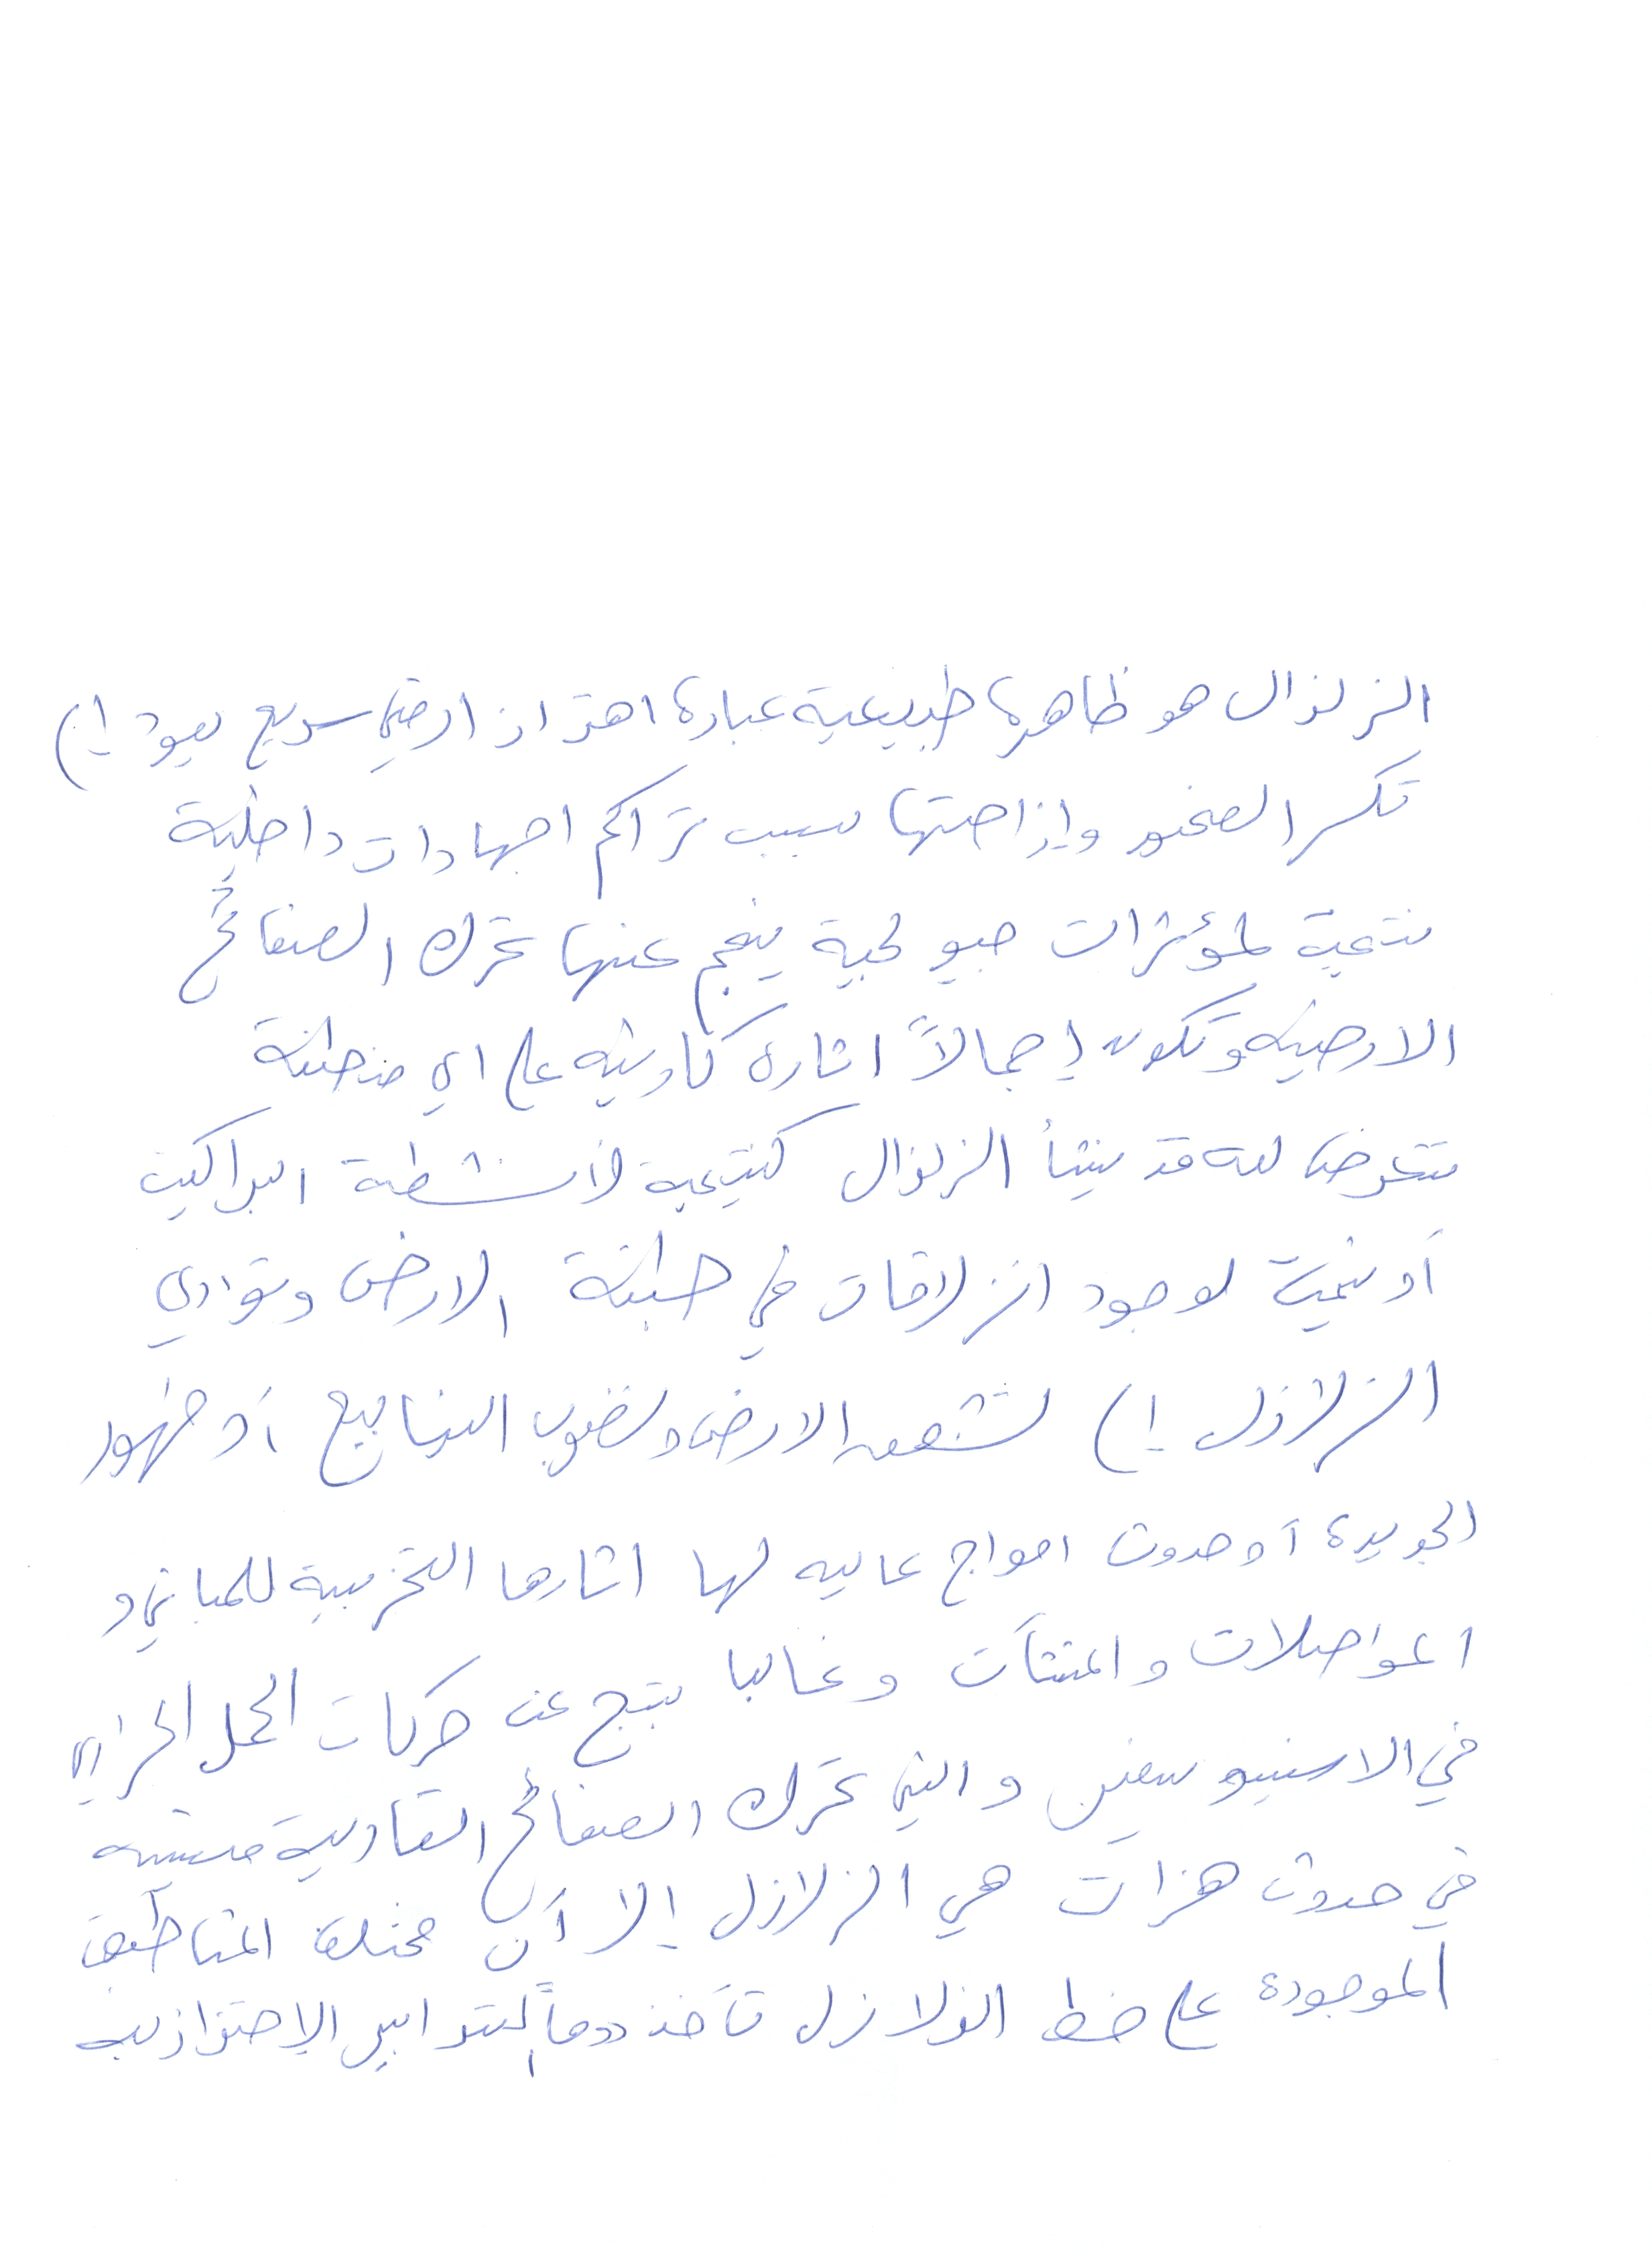 الزلزال هو ظاهرة طبيعية عبارة اهتزاز ارضي سريع يعود إلى
تكسر الصخور وإزاحتها بسبب تراكم اجهادات داخلية
نتيجة لمؤثرات جيولجية ينجم عنها تحرك الصفائح
الارضيه وتكون إجمالاً اثاره كارثيه على اي منطقة
تتعرض له قد ينشأ الزلزال كنتيجة لأنشطة البراكين
أو نتيجة لوجود انزلاقات في طبقة الارض وتؤدي
الزلازل إلى تشقق الارض ونضوب الينابيع أو ظهور
الجديدة أو حدوث امواج عاليه لها اثارها التخريبية للمباني و
المواصلات والمنشآت وغالبا ينتج عن حركات الحمل الحراري
في الاسنيوسفير والتي تحرك الصفائح القارية متسببه
في حدوث هزات هي الزلازل إلا أن مختلف المناطق
الموجودة على خط الزلازل تأخذ دوماً التدابير الإحترازية